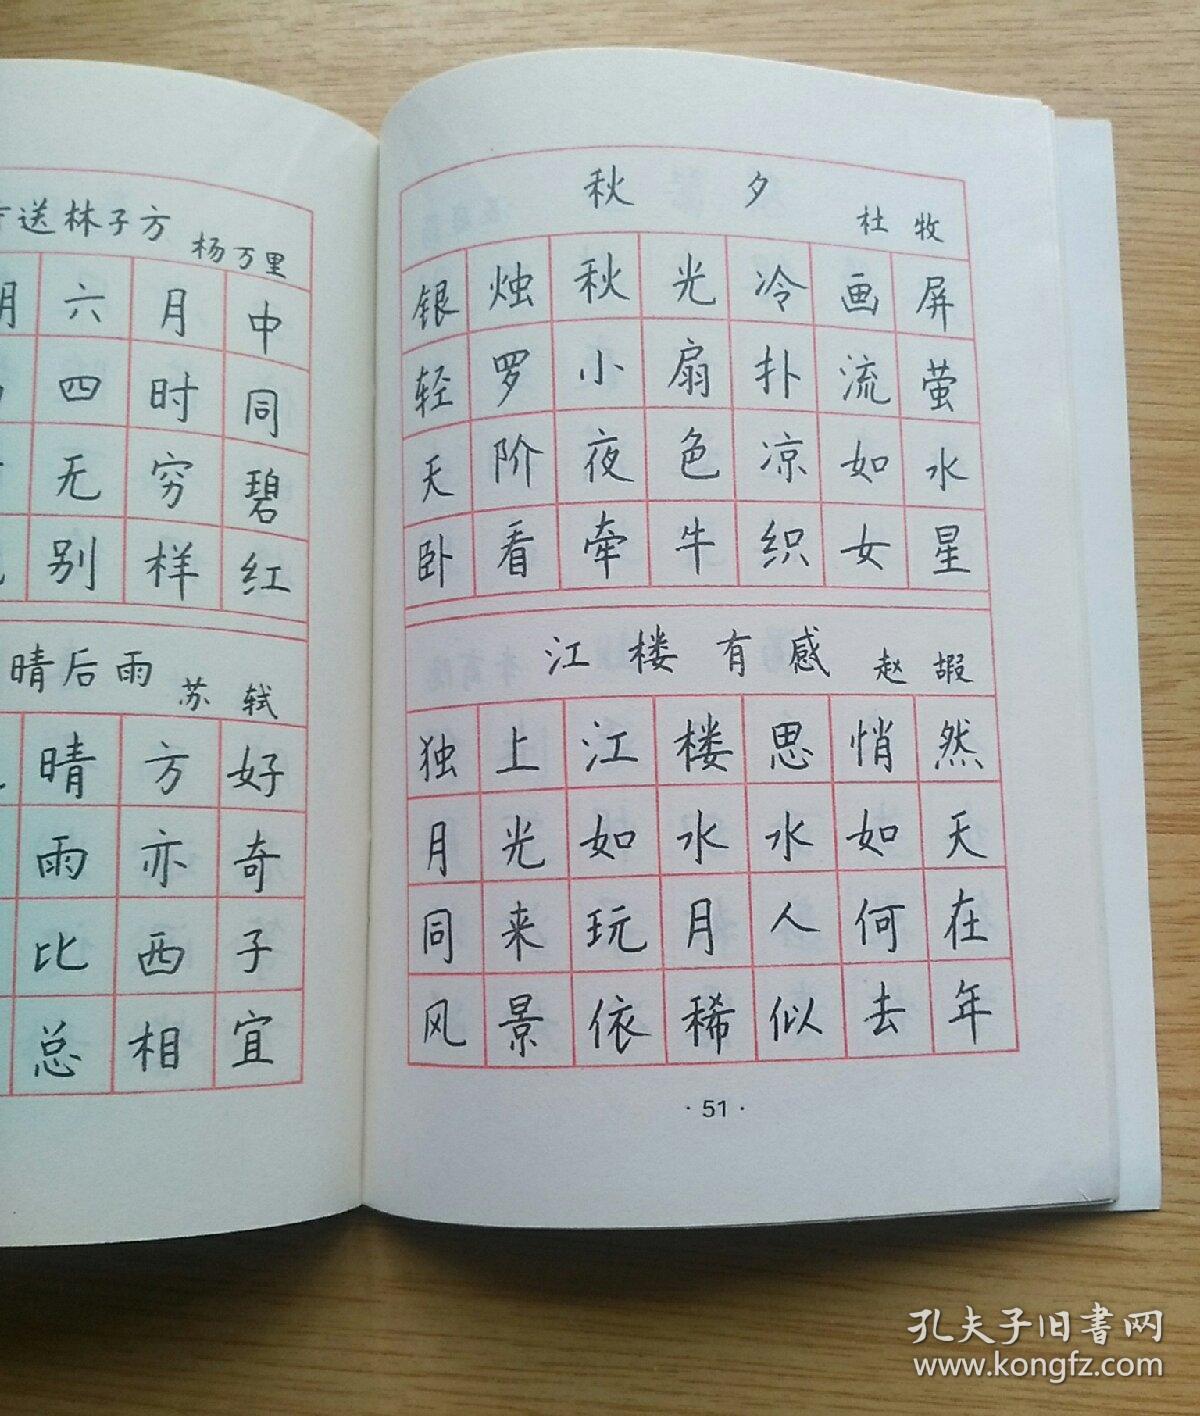 送林子方
杨万里
六月中
四时同
无穷碧
别样红
晴后雨
苏轼
晴方好
雨亦奇
比西子
总相宜
秋夕
杜牧
银烛秋光冷画屏
轻罗小扇扑流萤
天阶夜色凉如水
卧看牵牛织女星
江楼有感
赵嘏
独上江楼思悄然
月光如水水如天
同来玩月人何在
风景依稀似去年
·51·
孔夫子旧书网
www.kongfz.com